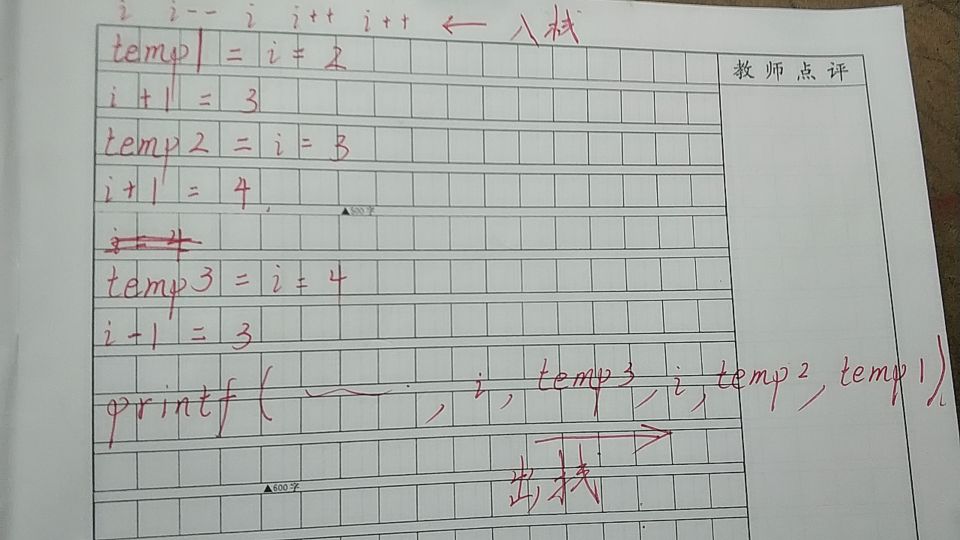 i i-- i i++ i++ ← 入栈
temp1 = i = 2
教师点评
i+1 = 3
temp2 = i = 3
i+1 = 4
▲500字
i = 4
temp3 = i = 4
i-1 = 3
printf( , i, temp3, i, temp2, temp1)
出栈
▲600字